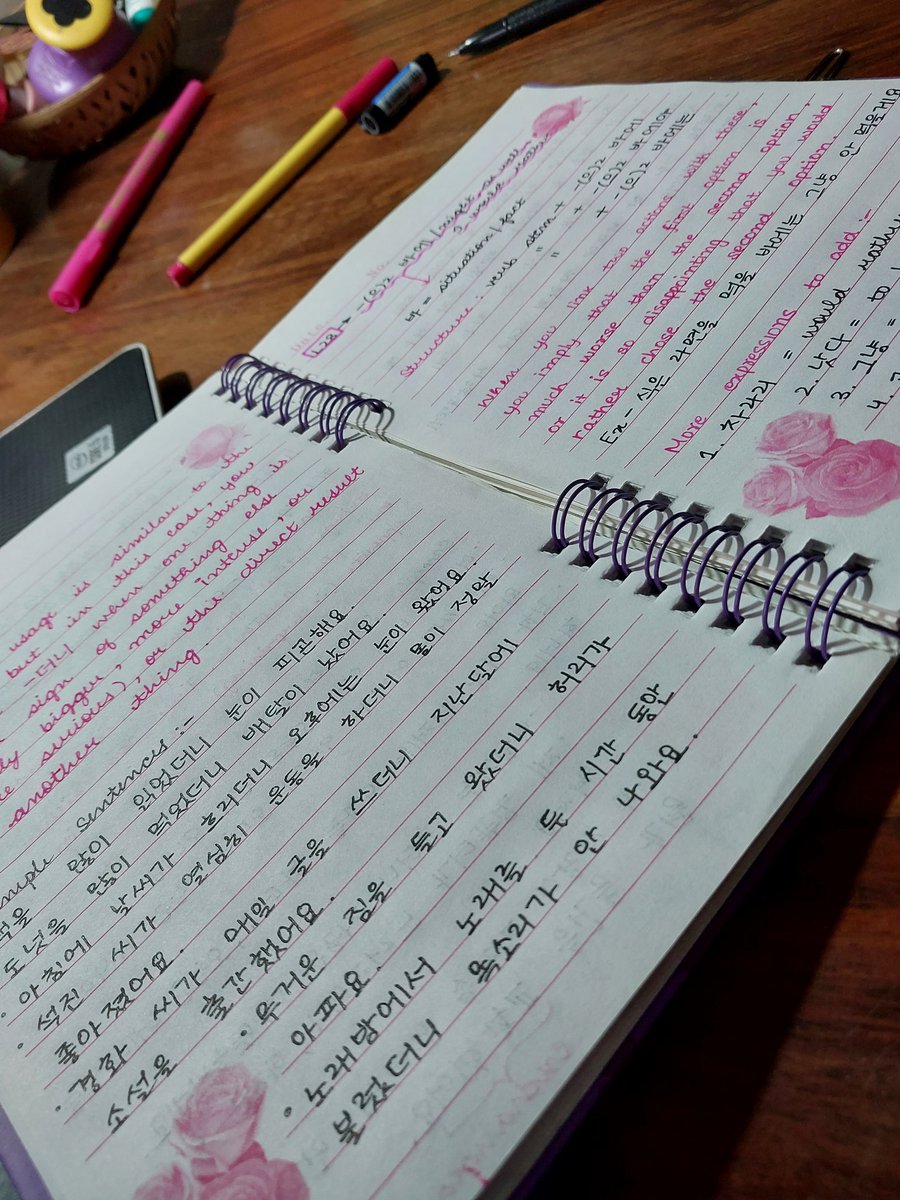 Date
No.
128 → -(으)ㄹ 바에 (might as well
I would rather
바 = situation / fact
Structure : verb stem + -(으)ㄹ 바에
" + -(으)ㄹ 바에야
" + -(으)ㄹ 바에는
When you link two actions with these,
you imply that the first option is
much worse than the second option,
or it is so disappointing that you would
rather chose the second option.
Ex - 식은 라면을 먹을 바에는 그냥 안 먹을게요
More expressions to add :-
1. 차라리 = would rather
2. 낫다 = to
3. 그냥 =
4.
usage is similar to the
but in this case, you
-더니 when one thing
sign of something else is
bigger, more intense, or
serious), or the direct result
another thing
Sentences :-
많이 읽었더니 눈이 피곤해요.
도넛을 많이 먹었더니 배탈이 났어요.
· 아침에 날씨가 흐리더니 오후에는 눈이 왔어요.
· 석진 씨가 열심히 운동을 하더니 몸이 정말
좋아졌어요.
· 경화 씨가 매일 글을 쓰더니 지난달에
소설을 출간했어요.
· 무거운 짐을 들고 왔더니 허리가
아파요.
· 노래방에서 노래를 두 시간 동안
불렀더니 목소리가 안 나와요.